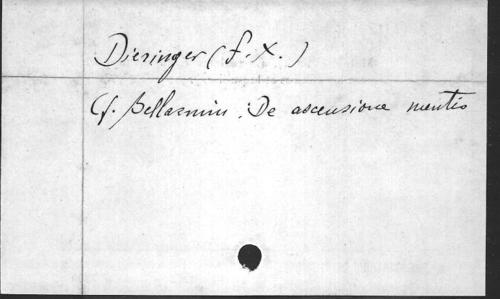 Dieringer (F. X.)
Cf. Bellarmin. De ascensione mentis